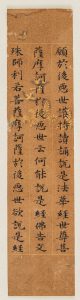 願於後惡世護持讀誦說是法華經世尊菩
薩摩訶薩於後惡世云何能說是經佛告文
殊師利若菩薩摩訶薩於後惡世欲說是經